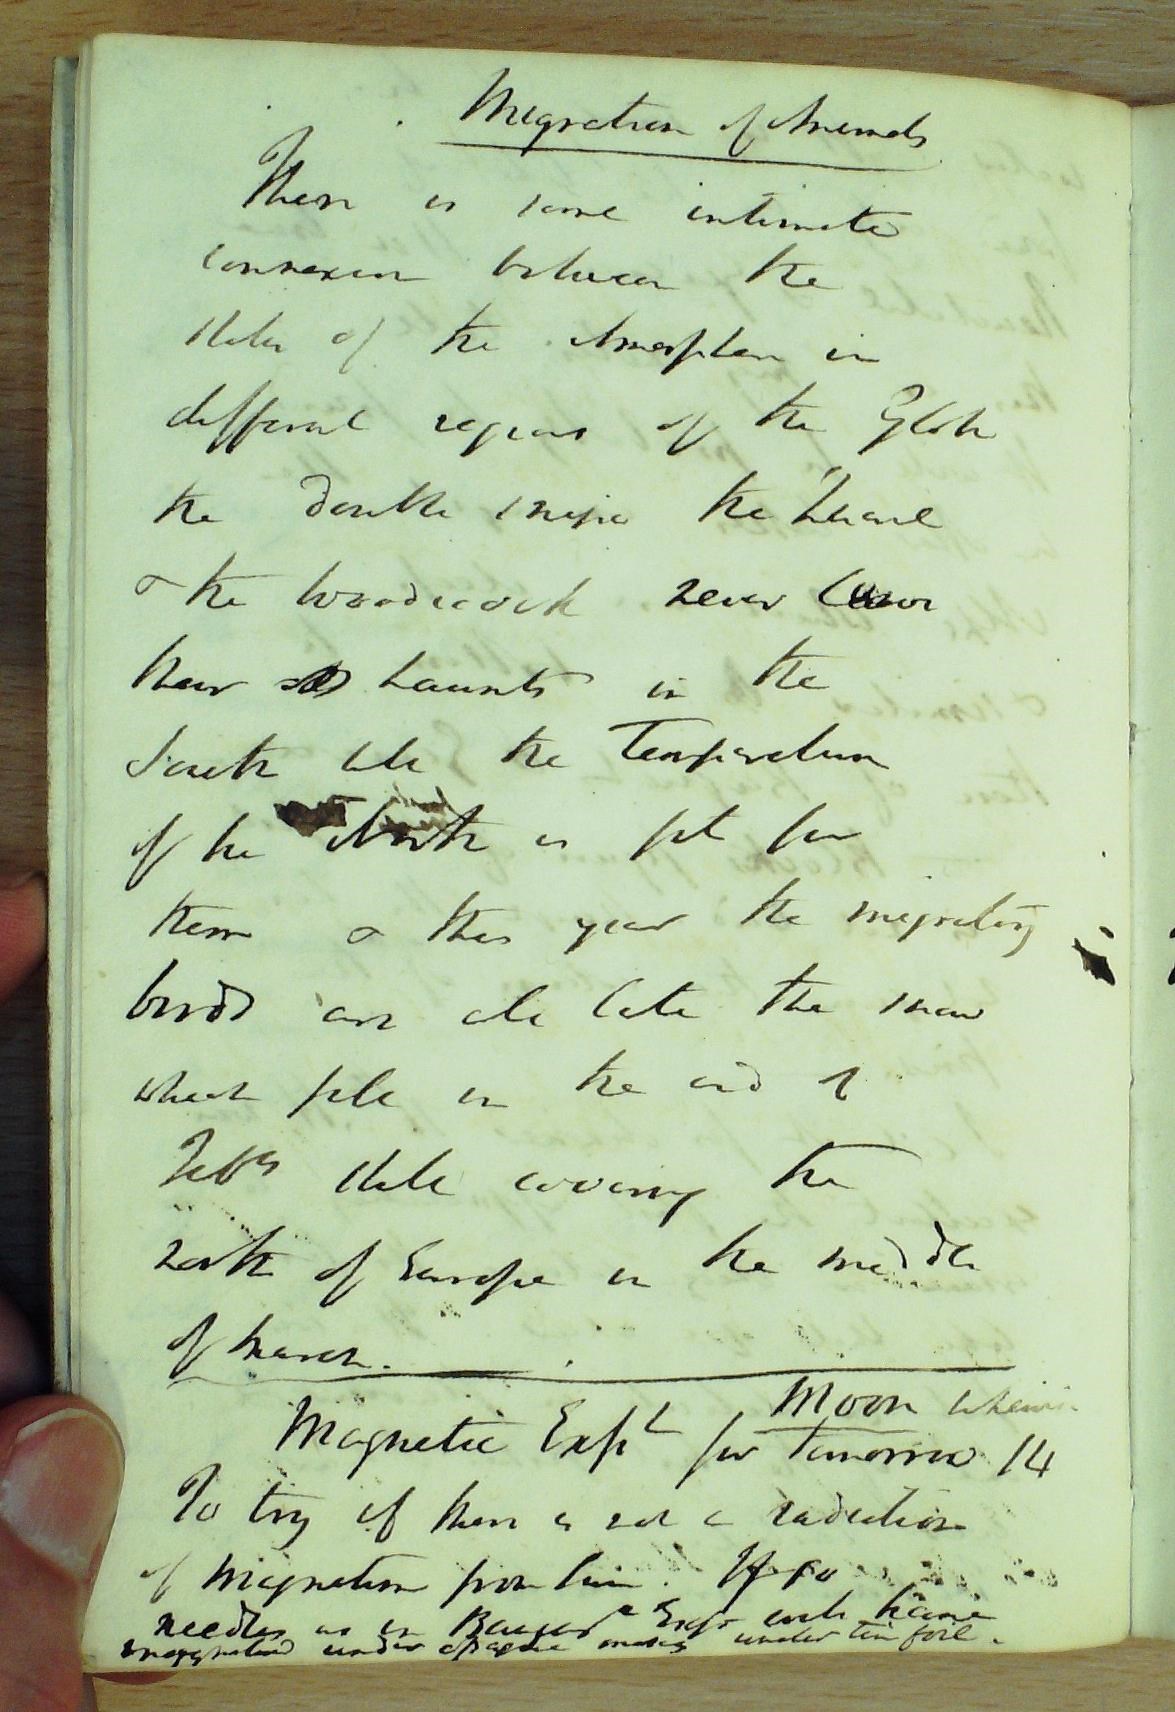 Migration of Animals
There is some intimate
connexion between the
state of the Atmosphere in
different regions of the Globe
the double snipe the
& the woodcock never leave
their haunts in the
South till the Temperature
of the North is fit for
them & this year the migrating
birds are all late the snow
which fell in the end of
Feby still covering the
north of Europe in the middle
of March.
Moon
Magnetic Expt for tomorrow 14
To try if there is not a radiation
of Magnetism from . If so
needles as in Expt will become
magnetised under opaque under tin foil.